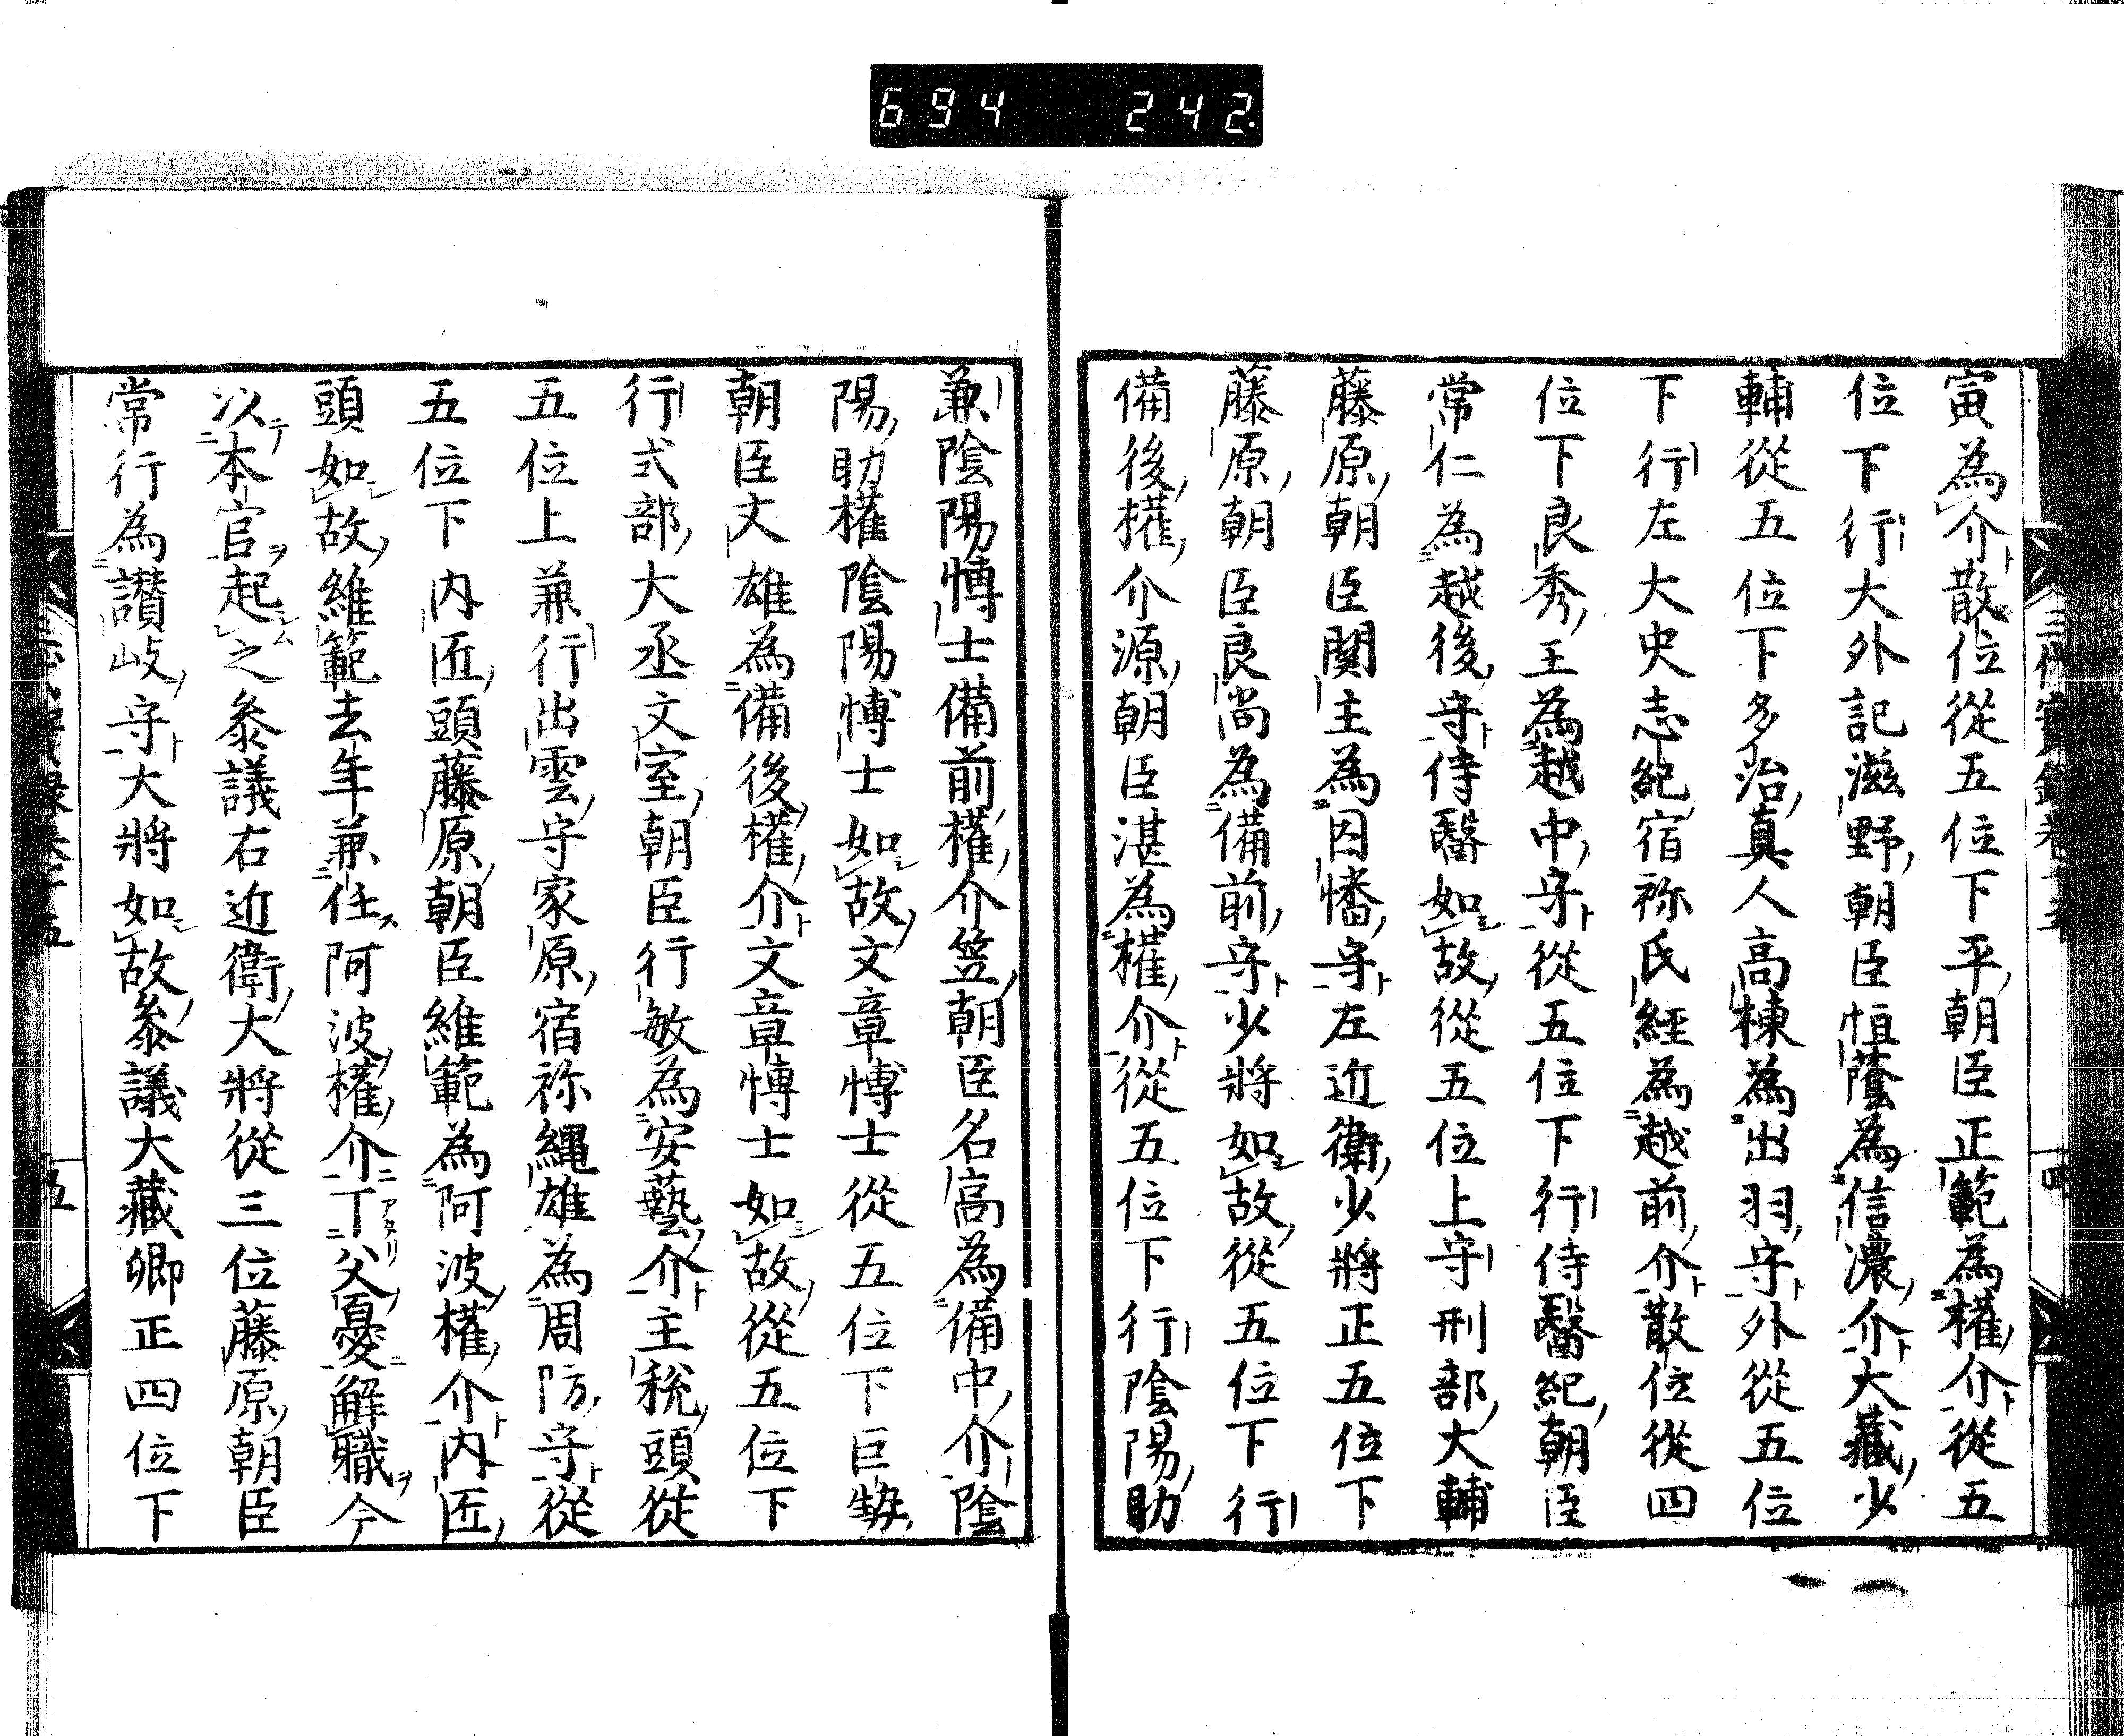 694 242.
寅為介散位從五位下平朝臣正範為權介從五
位下行大外記滋野朝臣恒蔭為信濃介大藏少
輔從五位下多治真人高棟為出羽守外從五位
下行左大史志紀宿祢氏經為越前介散位從四
位下良秀王為越中守從五位下行侍醫紀朝臣
常仁為越後守侍醫如故從五位上守刑部大輔
藤原朝臣関主為因幡守左近衛少將正五位下
藤原朝臣良尚為備前守少將如故從五位下行
備後權介源朝臣湛為權介從五位下行陰陽助
兼陰陽博士備前權介笠朝臣名高為備中介陰
陽助權陰陽博士如故文章博士從五位下巨勢
朝臣文雄為備後權介文章博士如故從五位下
行式部大丞文室朝臣行敏為安藝介主稅頭從
五位上兼行出雲守家原宿祢縄雄為周防守從
五位下內匠頭藤原朝臣維範為阿波權介內匠
頭如故維範去年兼任阿波權介丁父憂解職今
以本官起之參議右近衛大將從三位藤原朝臣
常行為讃岐守大將如故參議大藏卿正四位下